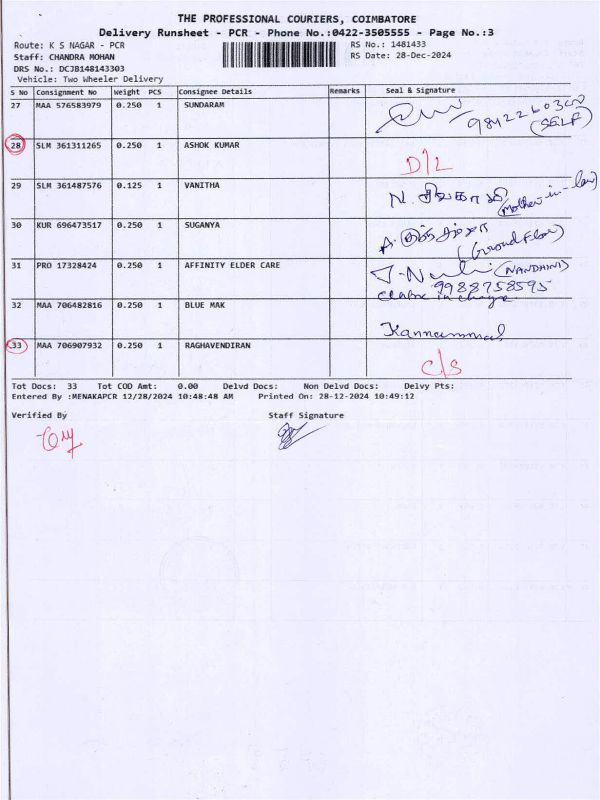 THE PROFESSIONAL COURIERS, COIMBATORE
Delivery Runsheet - PCR - Phone No.:0422-3505555 - Page No.:3
Route: K S NAGAR - PCR RS No.: 1481433
Staff: CHANDRA MOHAN RS Date: 28-Dec-2024
DRS No.: DCJB148143303
Vehicle: Two Wheeler Delivery
S No Consignment No Weight PCS Consignee Details Remarks Seal & Signature
27 MAA 576583979 0.250 1 SUNDARAM
(SELF)
28 SLM 361311265 0.250 1 ASHOK KUMAR
D/L
29 SLM 361487576 0.125 1 VANITHA
N. சிவகாமி (Mother in-law)
30 KUR 696473517 0.250 1 SUGANYA
(Ground Floor)
31 PRO 17328424 0.250 1 AFFINITY ELDER CARE
(NANDAINI)
9988758595
in charge
32 MAA 706482816 0.250 1 BLUE MAK
Kannammal
33 MAA 706907932 0.250 1 RAGHAVENDIRAN
C/S
Tot Docs: 33 Tot COD Amt: 0.00 Delvd Docs: Non Delvd Docs: Delvy Pts:
Entered By :MENAKAPCR 12/28/2024 10:48:48 AM Printed On: 28-12-2024 10:49:12
Verified By Staff Signature